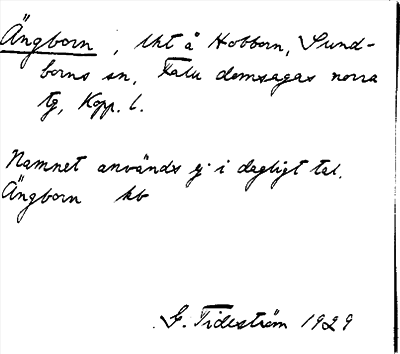 Ängborn, tht å Hobborn, Sund-
borns sn, Falu domsagas norra
tg, Kopp. l.
Namnet används ej i dagligt tal.
Ängborn kb
G. Tideström 1929